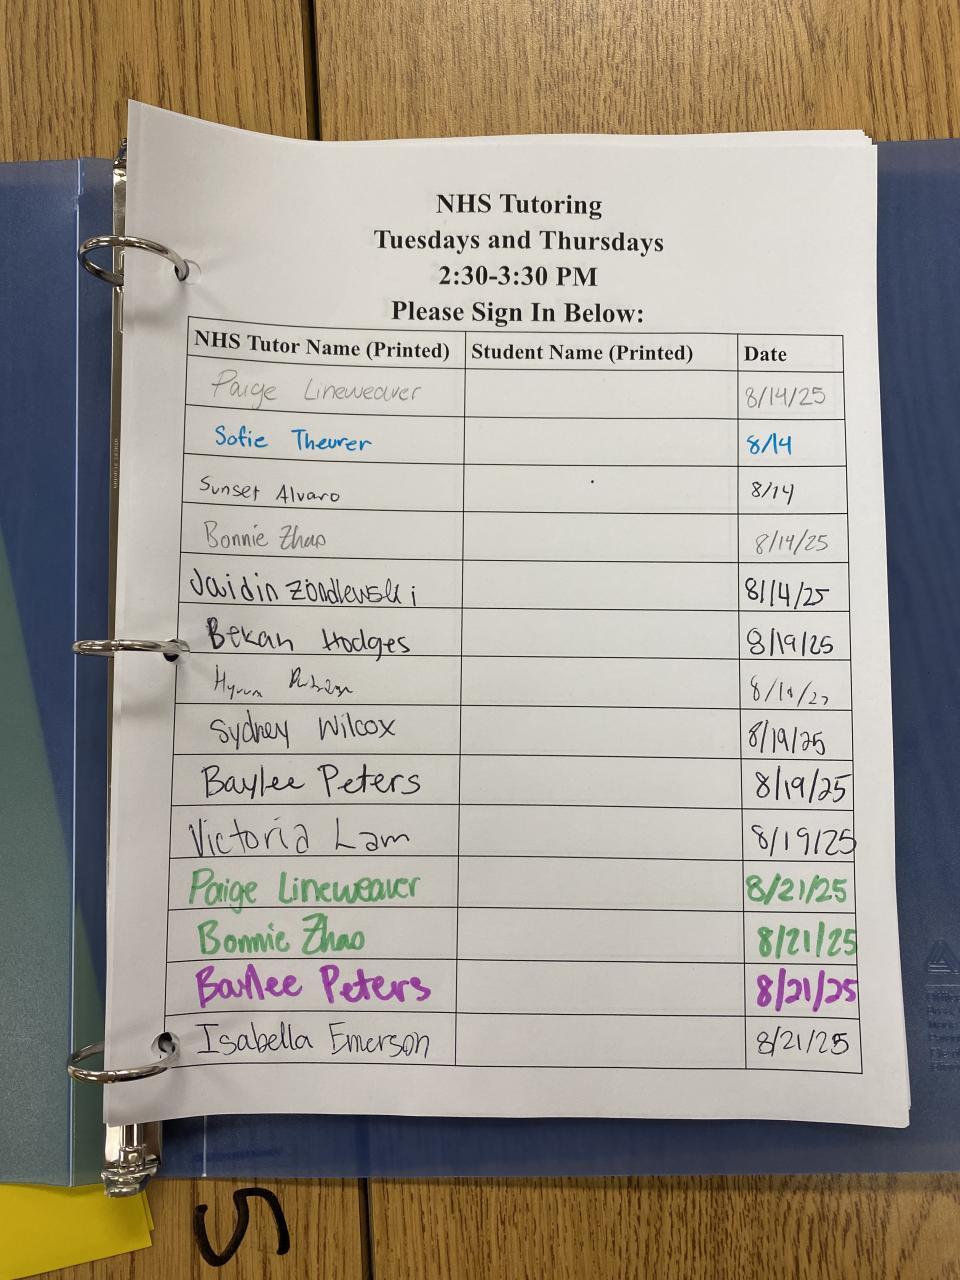 NHS Tutoring
Tuesdays and Thursdays
2:30-3:30 PM
Please Sign In Below:
NHS Tutor Name (Printed) Student Name (Printed) Date
Paige Lineweaver 8/14/25
Sofie Theurer 8/14
Sunset Alvaro 8/14
Bonnie Zhao 8/14/25
Jaidin Zondlewski 8/14/25
Bekah Hodges 8/19/25
Sydney Wilcox 8/19/25
Baylee Peters 8/19/25
Victoria Lam 8/19/25
Paige Lineweaver 8/21/25
Bonnie Zhao 8/21/25
Baylee Peters 8/21/25
Isabella Emerson 8/21/25
5